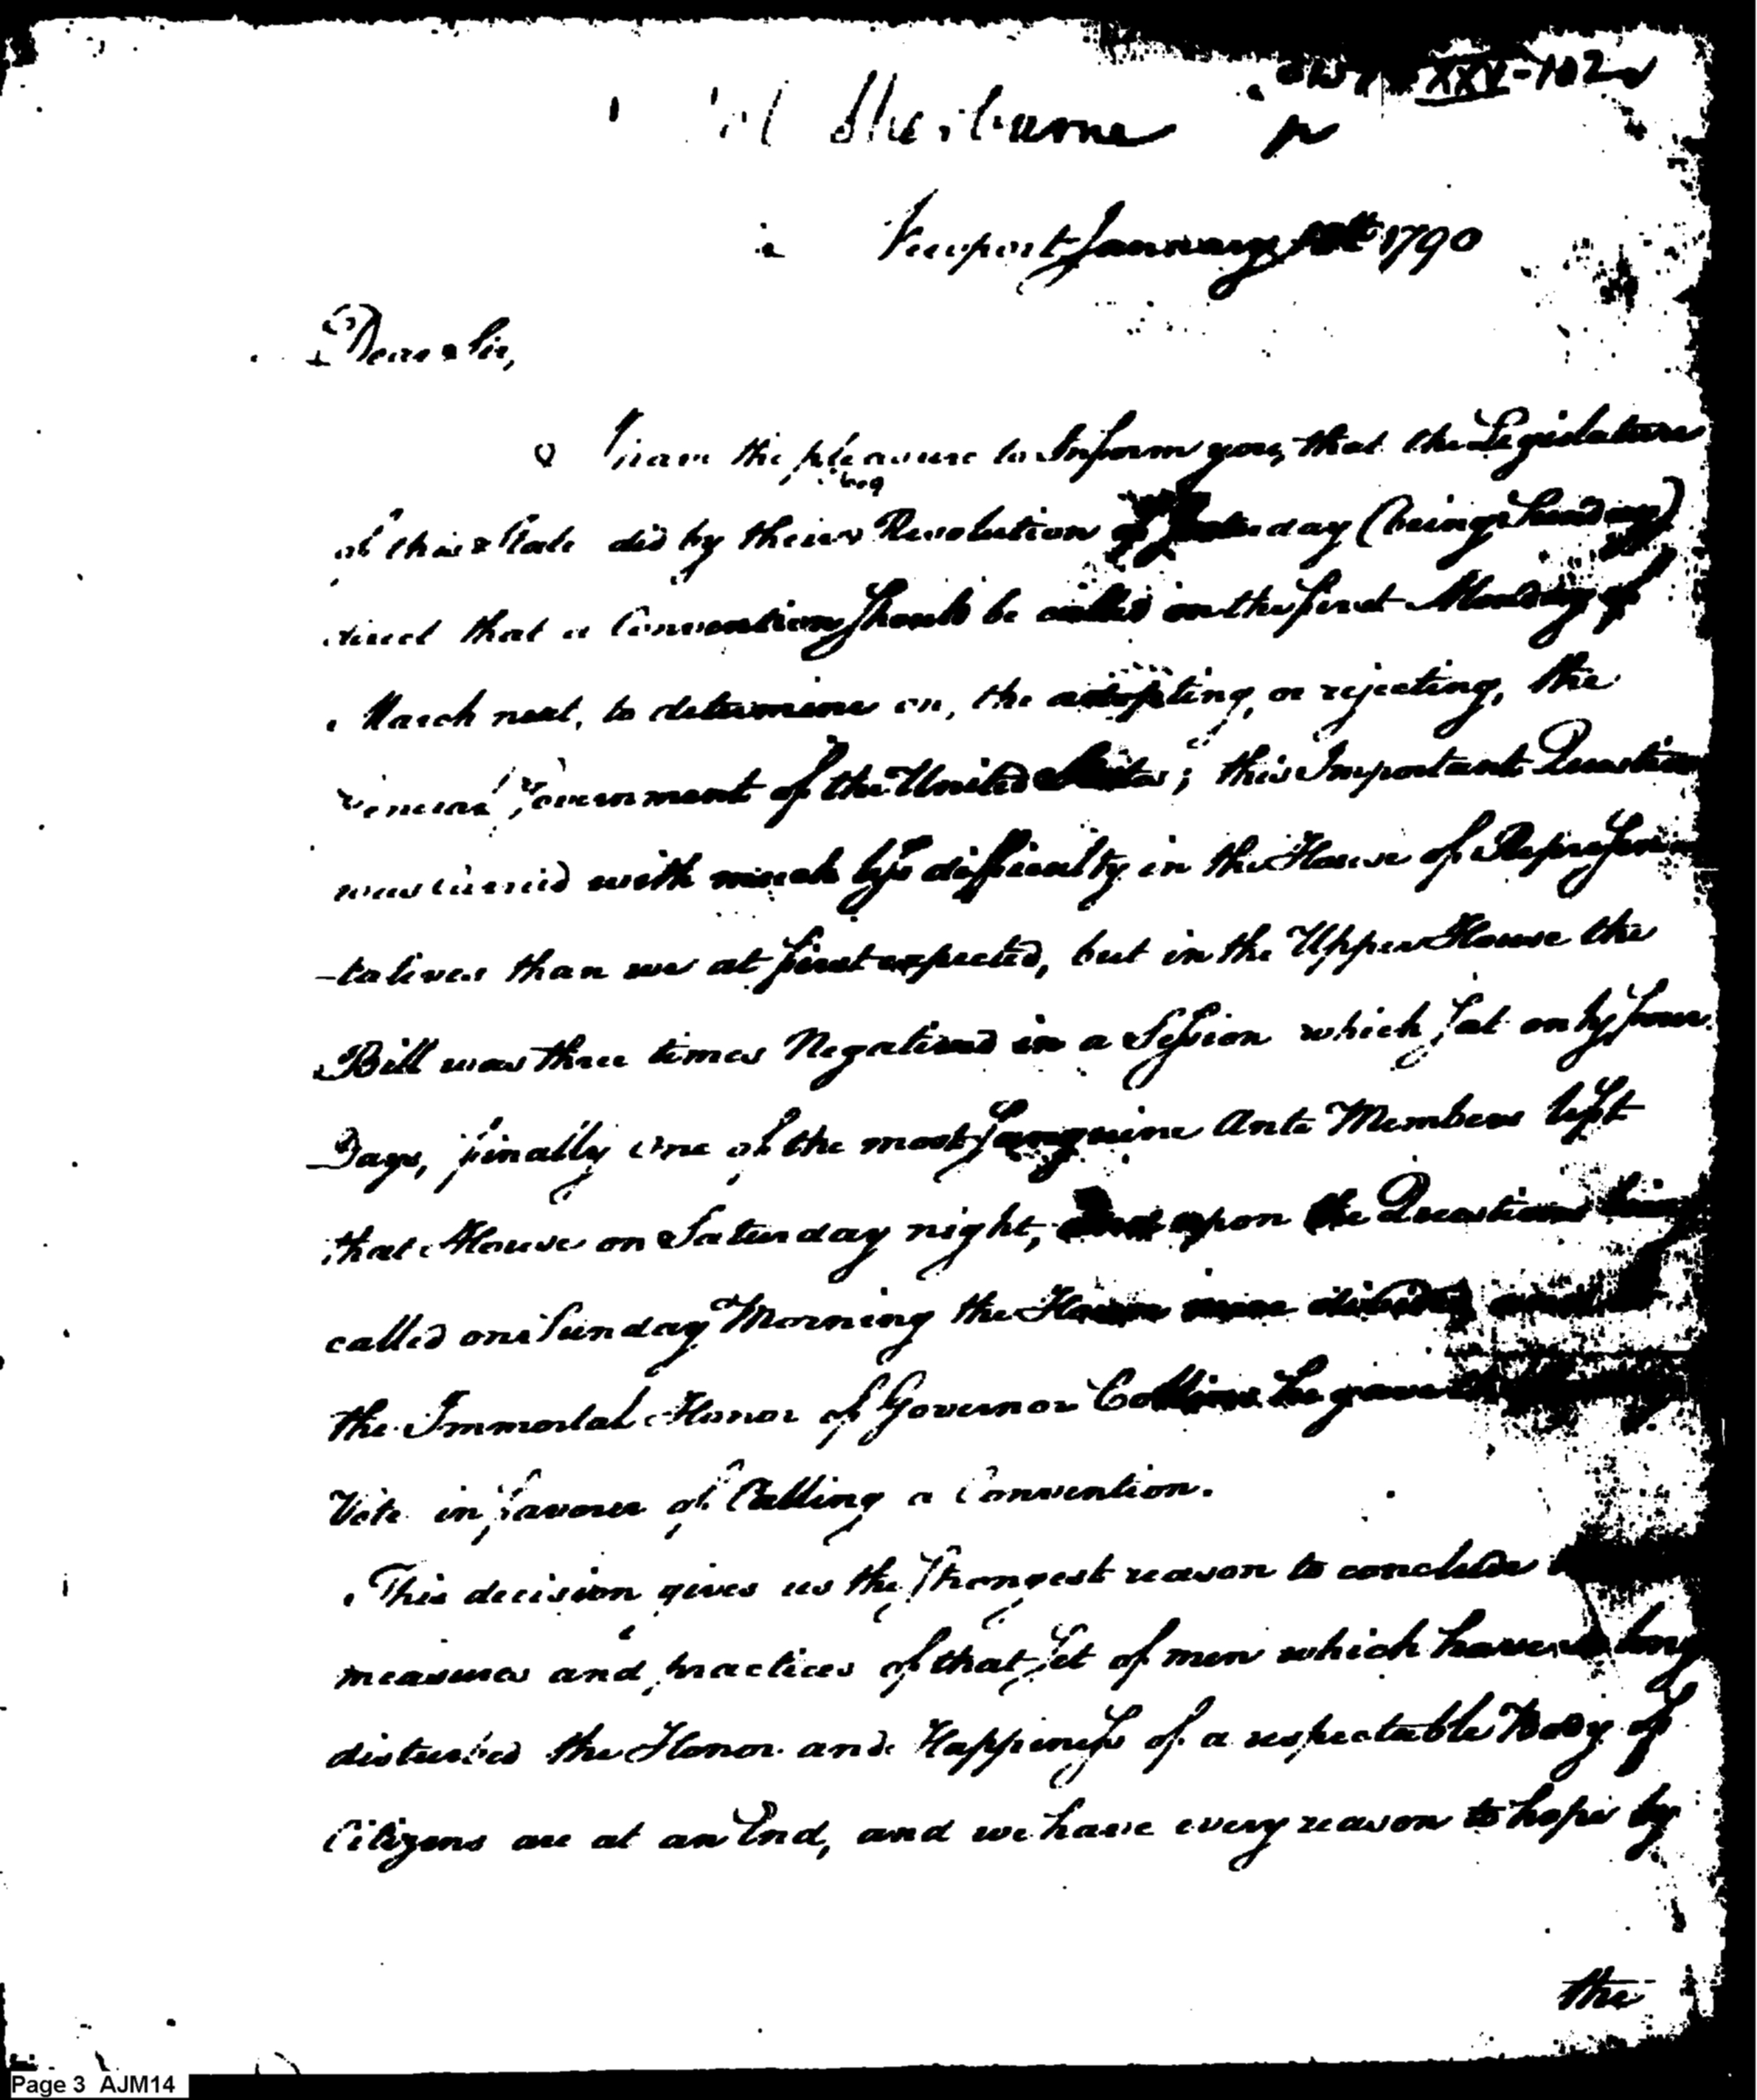 Col Sherburne
XXV-102
Newport January 1790
Dear Sir,
I have the pleasure to Inform you, that the Legislature
of this State did by their Resolution of Yesterday (being Sunday)
direct that a Convention should be called on the first Monday of
March next, to determine on, the adopting, or rejecting, the
General Government of the United States; this Important Question
was carried with much less difficulty in the House of Represen
-tatives than we at first expected, but in the Upper House the
Bill was three times Negatived in a Session which sat only four
Days, finally One of the most sanguine Ante Members left
that House on Saturday night, and upon the Question being
called on Sunday Morning the House were divided,
the Immortal Honor of Governor Collins he gave
Vote in favour of Calling a Convention.
This decision gives us the strongest reason to conclude
measures and practices of that set of men which have so long
disturbed the Honor and Happiness of a respectable Body of
Citizens are at an End, and we have every reason to hope by
the
Page 3 AJM14